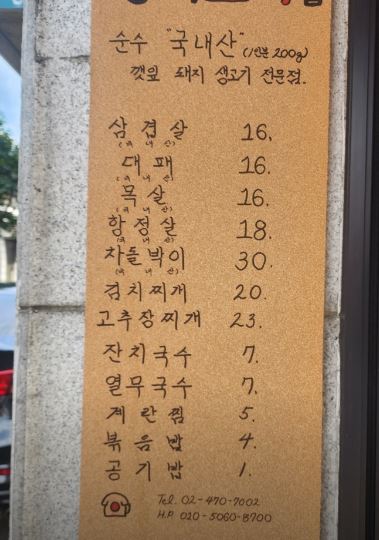 순수 "국내산" (1인분 200g)
깻잎 돼지 생고기 전문점.
삼겹살 16,
(국내산)
대패 16.
(국내산)
목살 16.
(국내산)
항정살 18.
(국내산)
차돌박이 30.
(국내산)
김치찌개 20.
고추장찌개 23.
잔치국수 7.
열무국수 7.
계란찜 5.
볶음밥 4.
공기밥 1.
Tel. 02-470-7002
H.P. 010-5060-8700